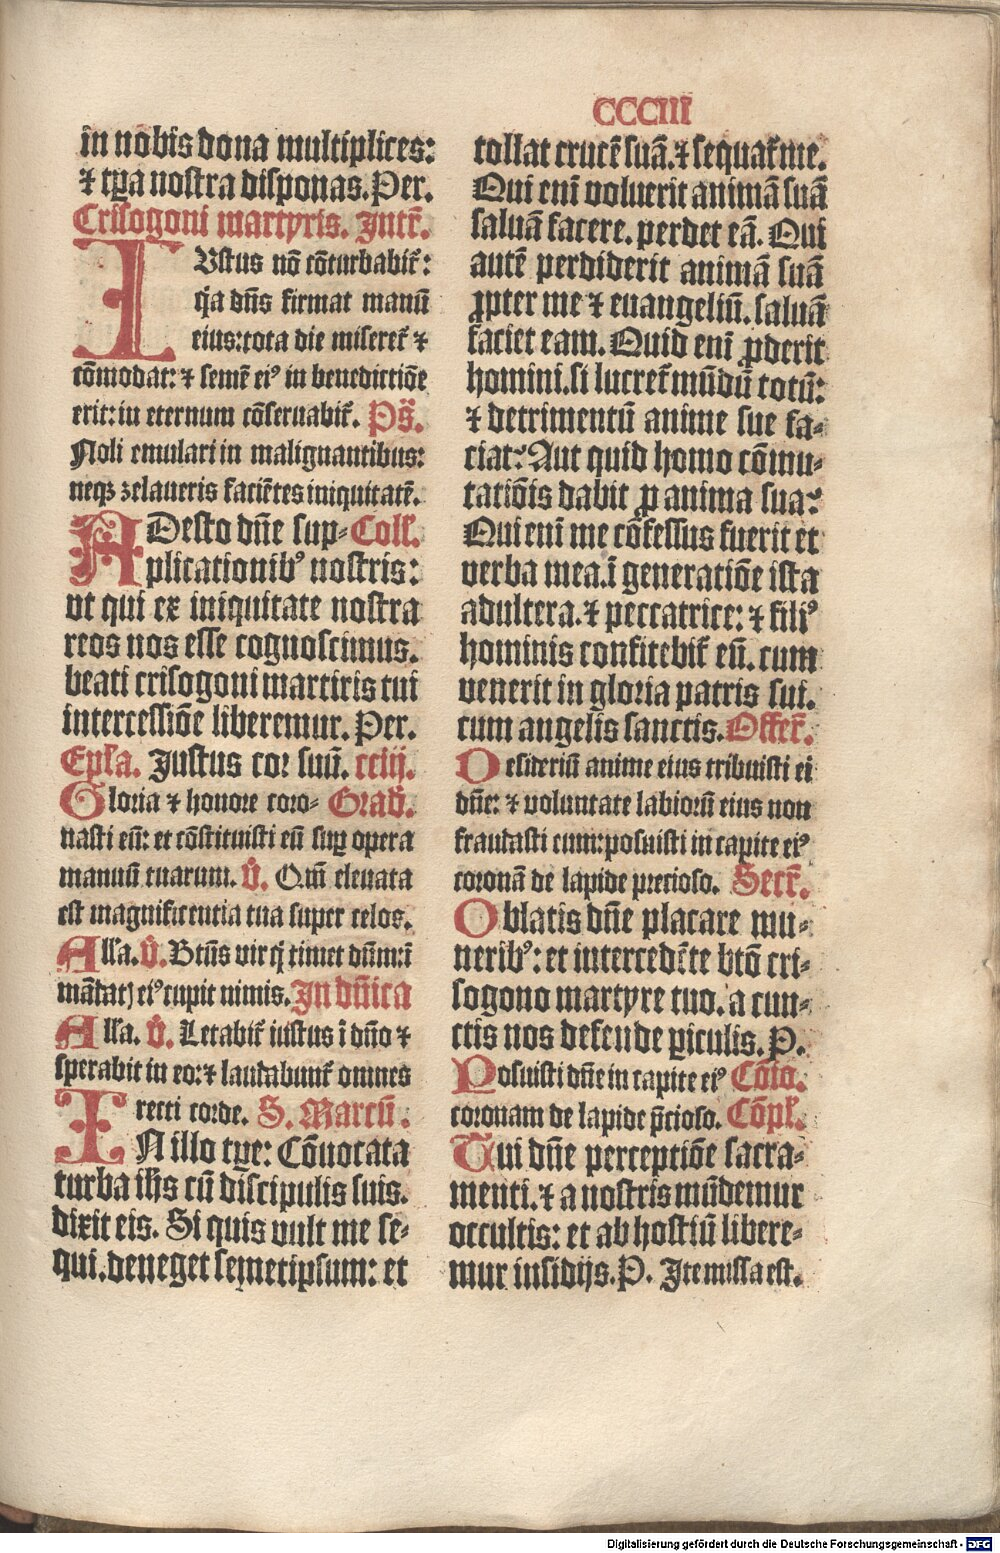 CCCIII
in nobis dona multiplices:
⁊ tꝑa nostra disponas. Per.
Crisogoni martyris. Intr̄.
IVstus nō cōturbabit᷑:
q̇a dn̄s firmat manū
eius: tota die miseret᷑ ⁊
cōmodat: ⁊ semē eiꝰ in benedictiōe
erit: in eternum cōseruabit᷑. Ps̄.
Noli emulari in malignantibus:
neqꝫ zelaueris faciētes iniquitatē.
ADesto dn̄e sup⸗ Coll̄.
plicationibꝰ nostris:
vt qui ex iniquitate nostra
reos nos esse cognoscimus.
beati crisogoni martiris tui
intercessiōe liberemur. Per.
Epl̄a. Justus cor suū. cciij.
Gloria ⁊ honore coro⸗ Grad̄.
nasti eū: et cōstituisti eū suꝑ opera
manuū tuarum. V̊. Qm̄ eleuata
est magnificentia tua super celos.
All̄a. V̊. Btūs vir q̇ timet dn̄m: ī
mādatꝭ eiꝰ cupit nimis. In dn̄ica
All̄a. V̊. Letabit᷑ iustus ī dn̄o ⁊
sperabit in eo: ⁊ laudabunt᷑ omnes
recti corde. S. Marcū.
IN illo tꝑe: Cōuocata
turba ih̄s cū discipulis suis.
dixit eis. Si quis vult me se⸗
qui. deneget semetipsum: et
tollat crucē suā. ⁊ sequat᷑ me.
Qui eni̅ voluerit animā suā
saluā facere. perdet eā. Qui
autē perdiderit animā suā
ꝓpter me ⁊ euangeliū. saluā
faciet eam. Quid eni̅ ꝓderit
homini. si lucret᷑ mūdū totū:
⁊ detrimentū anime sue fa⸗
ciat? Aut quid homo cōmu⸗
tatiōis dabit ꝓ anima sua?
Qui eni̅ me cōfessus fuerit et
verba mea. ī generatiōe ista
adultera. ⁊ peccatrice: ⁊ filiꝰ
hominis confitebit᷑ eū. cum
venerit in gloria patris sui.
cum angelis sanctis. Offer̄.
Desideriū anime eius tribuisti ei
dn̄e: ⁊ voluntate labiorū eius non
fraudasti eum: posuisti in capite eiꝰ
coronā de lapide precioso. Secr̄.
Oblatis dn̄e placare mu⸗
neribꝰ: et intercedēte btō cri⸗
sogono martyre tuo. a cun⸗
ctis nos defende ꝑiculis. P.
Posuisti dn̄e in capite eiꝰ Cōio.
coronam de lapide p̄cioso. Cōpl̄.
Tui dn̄e perceptiōe sacra⸗
menti. ⁊ a nostris mūdemur
occultis: et ab hostiū libere⸗
mur insidijs. P. Ite missa est.
Digitalisierung gefördert durch die Deutsche Forschungsgemeinschaft - DFG